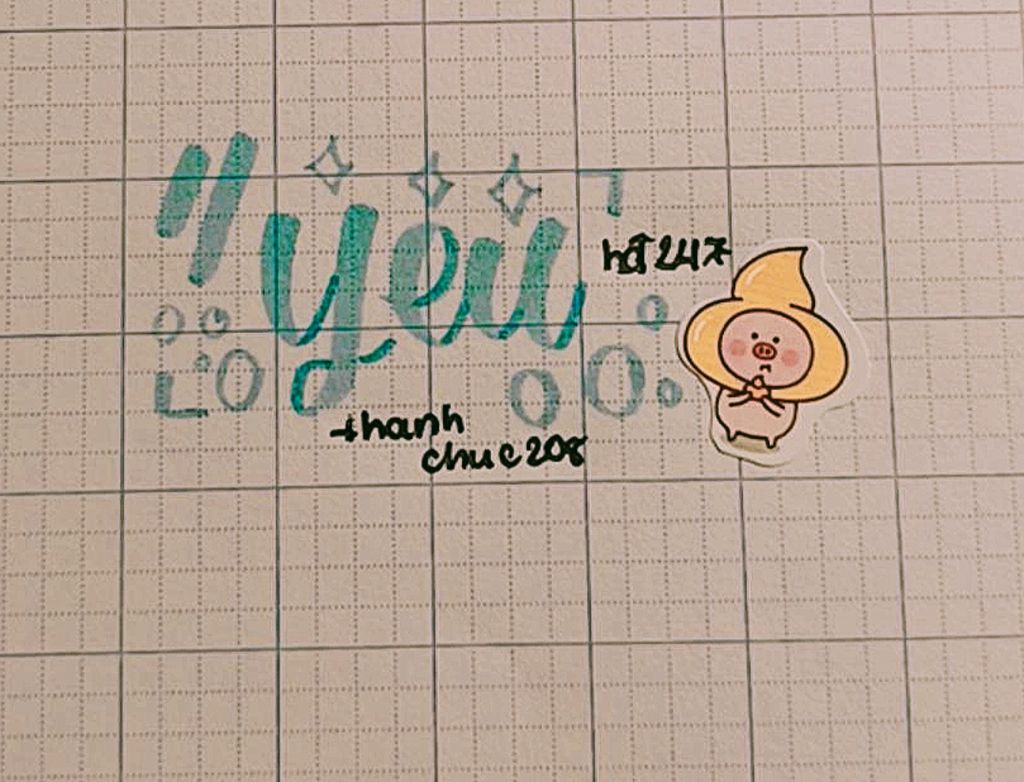 yeu
247
thanh
chuc208